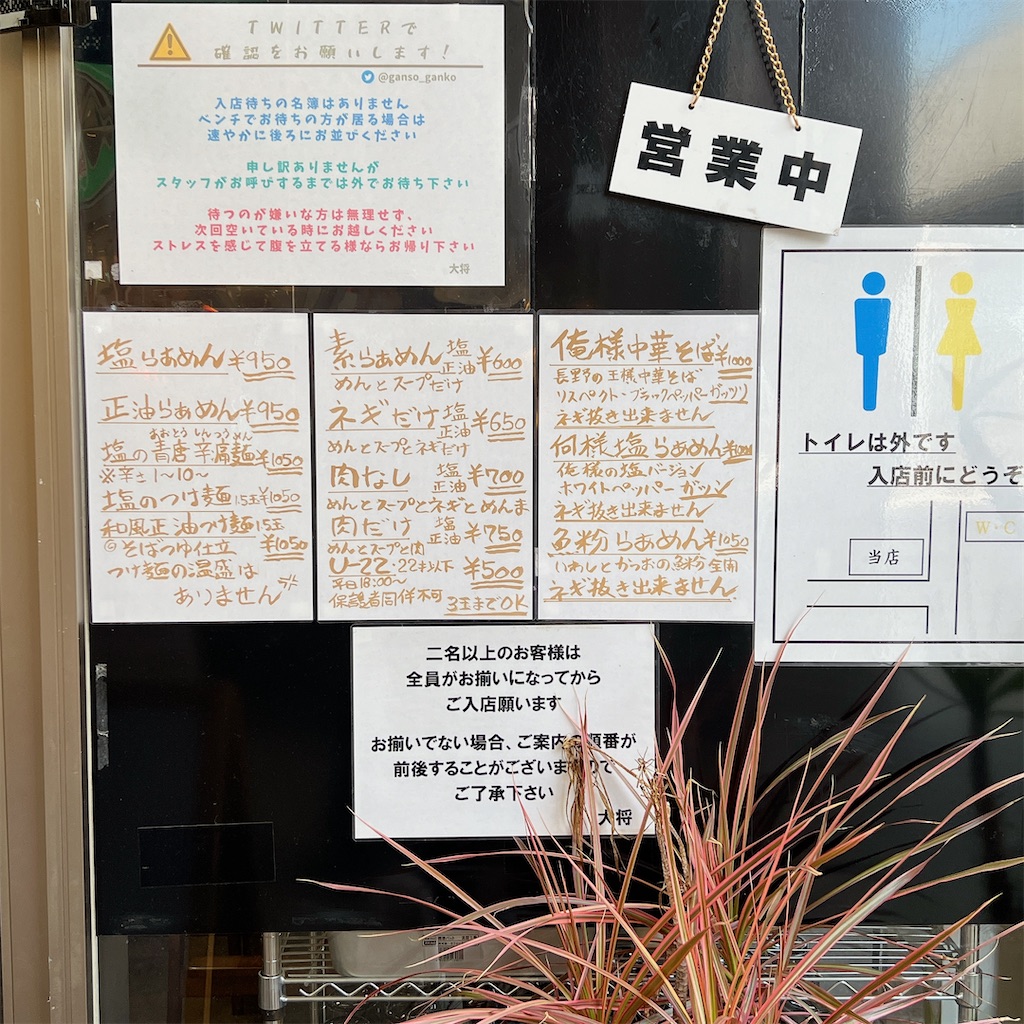 TWITTERで
確認をお願いします!
@ganso_ganko
入店待ちの名簿はありません
ベンチでお待ちの方が居る場合は
速やかに後ろにお並びください
申し訳ありませんが
スタッフがお呼びするまでは外でお待ち下さい
待つのが嫌いな方は無理せず、
次回空いている時にお越しください
ストレスを感じて腹を立てる様ならお帰り下さい
大将
営業中
塩らぁめん ¥950
正油らぁめん ¥950
あおとう しんつうめん
塩の青唐辛痛麺 ¥1050
※辛さ1〜10〜
塩のつけ麺 1.5玉 ¥1050
和風正油つけ麺 1.5玉
◎そばつゆ仕立 ¥1050
つけ麺の温盛は
ありません
素らぁめん 塩 正油 ¥600
めんとスープだけ
ネギだけ 塩 正油 ¥650
めんとスープとネギだけ
肉なし 塩 正油 ¥700
めんとスープとネギとめんま
肉だけ 塩 正油 ¥750
めんとスープと肉
U-22・22才以下 ¥500
平日18:00〜
保護者同伴不可 3玉までOK
俺様中華そば ¥1000
長野の王様中華そば
リスペクト・ブラックペッパーガッツリ
ネギ抜き出来ません
何様塩らぁめん ¥1000
俺様の塩バージョン
ホワイトペッパーガッツン
ネギ抜き出来ません
魚粉らぁめん ¥1050
いわしとかつおの魚粉全開
ネギ抜き出来ません
トイレは外です
入店前にどうぞ
W・C
当店
二名以上のお客様は
全員がお揃いになってから
ご入店願います
お揃いでない場合、ご案内の順番が
前後することがございますので
ご了承下さい
大将